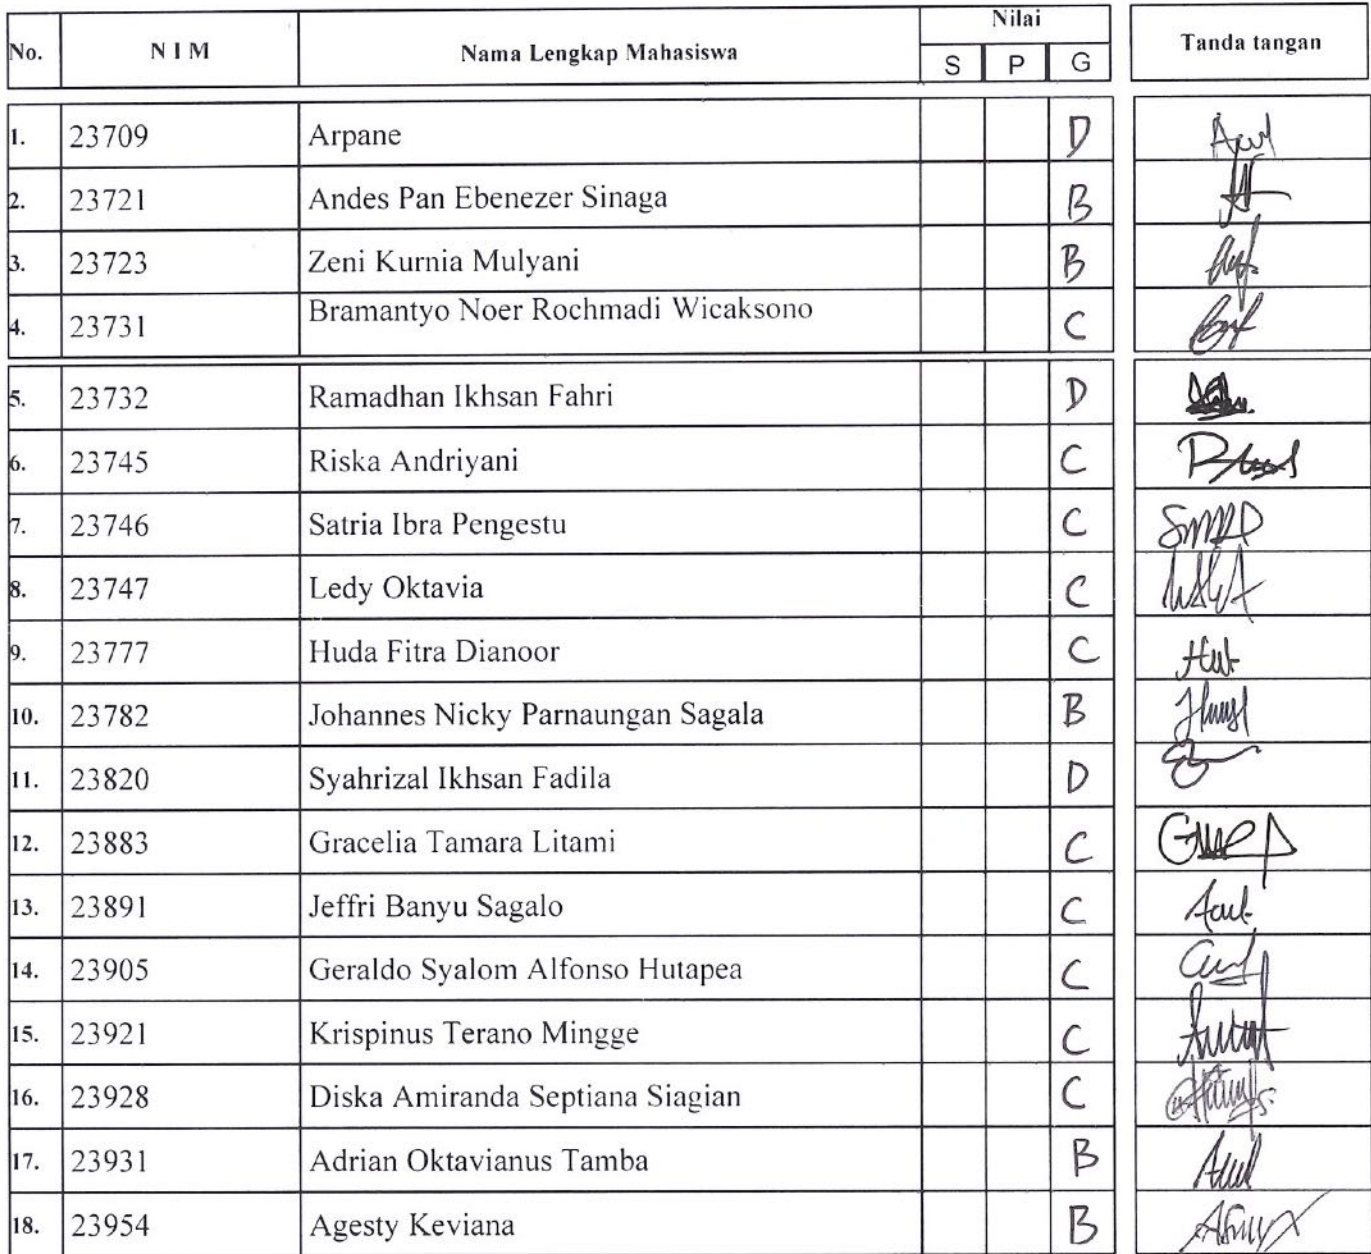 No. N I M Nama Lengkap Mahasiswa Nilai Tanda tangan
S P G
1. 23709 Arpane D
2. 23721 Andes Pan Ebenezer Sinaga B
3. 23723 Zeni Kurnia Mulyani B
4. 23731 Bramantyo Noer Rochmadi Wicaksono C
5. 23732 Ramadhan Ikhsan Fahri D
6. 23745 Riska Andriyani C
7. 23746 Satria Ibra Pengestu C
8. 23747 Ledy Oktavia C
9. 23777 Huda Fitra Dianoor C
10. 23782 Johannes Nicky Parnaungan Sagala B
11. 23820 Syahrizal Ikhsan Fadila D
12. 23883 Gracelia Tamara Litami C
13. 23891 Jeffri Banyu Sagalo C
14. 23905 Geraldo Syalom Alfonso Hutapea C
15. 23921 Krispinus Terano Mingge C
16. 23928 Diska Amiranda Septiana Siagian C
17. 23931 Adrian Oktavianus Tamba B
18. 23954 Agesty Keviana B